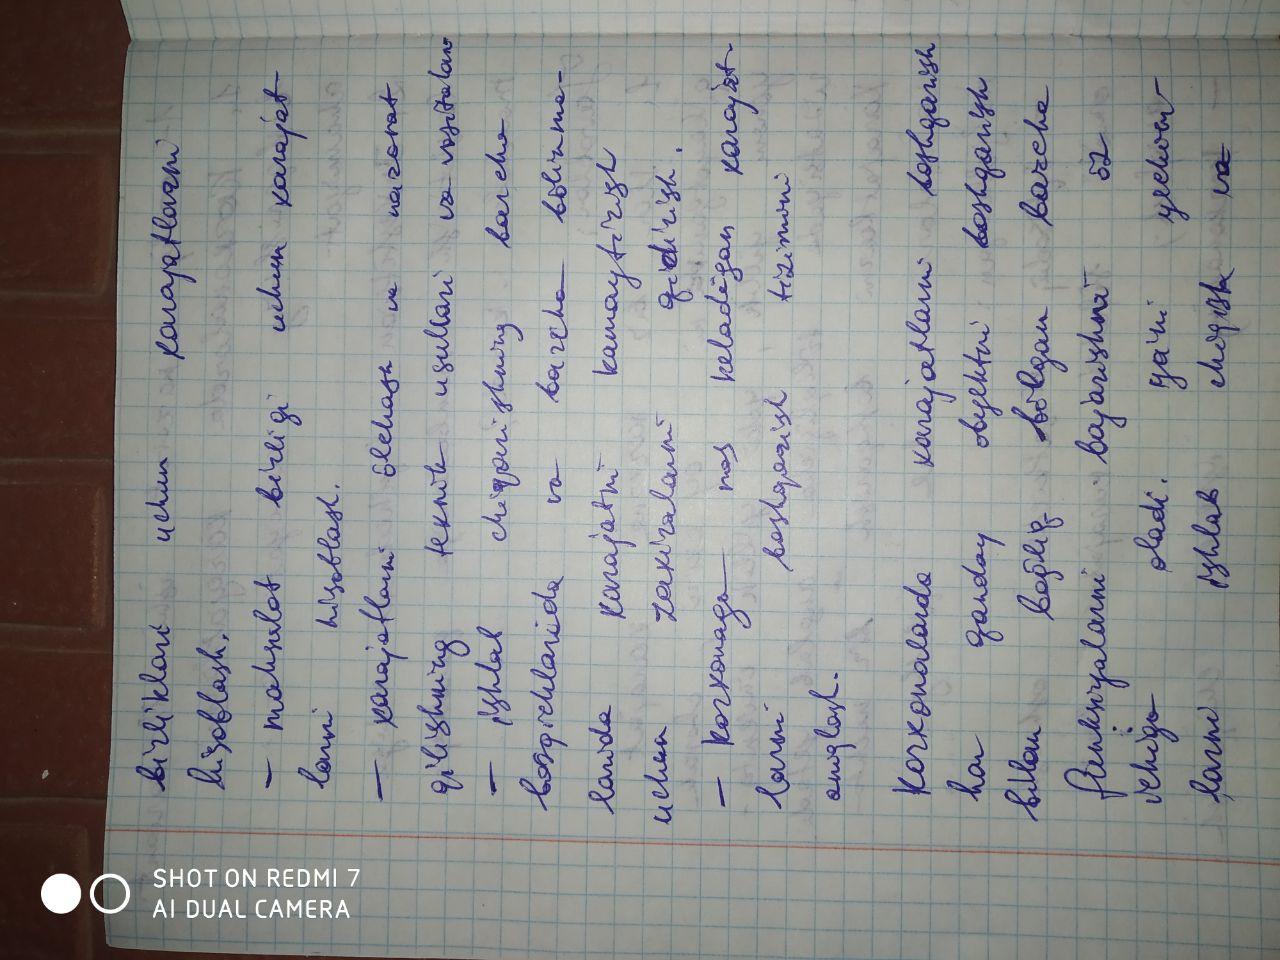 birliklari uchun xarajatlarni
hisoblash.
– mahsulot birligi uchun xarajat-
larni hisoblash.
– xarajatlarni ölchash va nazorat
qilishning texnik usullari va vositalari
– ishlab chiqarishning barcha
bosqichlarida va barcha bölinma-
larida xarajatni kamaytirish
uchun zaxiralarni qidirish.
– korxonaga mos keladigan xarajat
larni boshqarish tizimini
aniqlash.
Korxonalarda xarajatlarni boshqarish
har qanday obyektni boshqarish
bilan boğliq bölgan barcha
funksiyalarni bajarishni öz
ichiga oladi. ya'ni yechim
larni ishlab chiqish va
SHOT ON REDMI 7
AI DUAL CAMERA